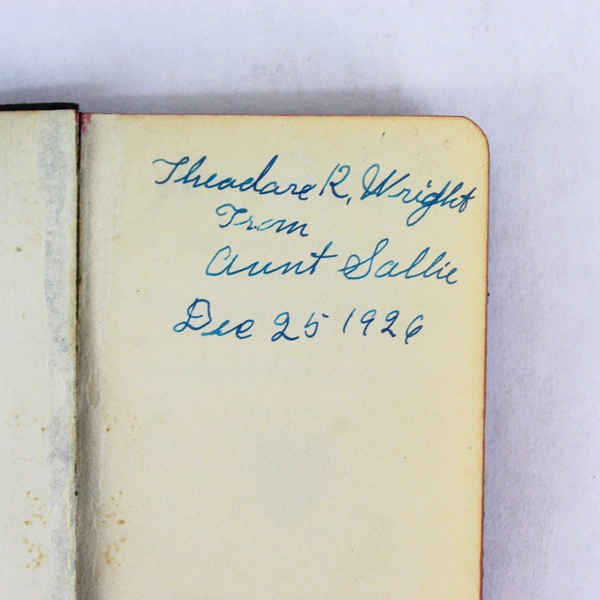 Theodore R. Wright
From
Aunt Sallie
Dec 25 1926